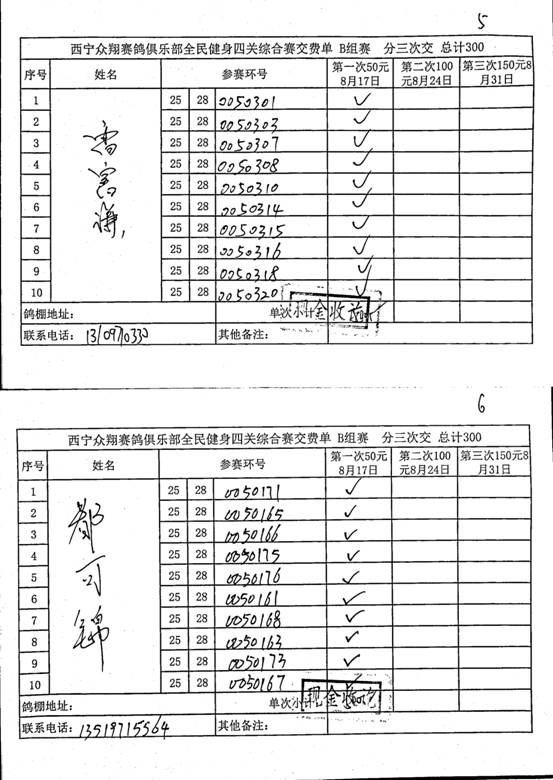 5
西宁众翔赛鸽俱乐部全民健身四关综合赛交费单 B组赛 分三次交 总计300
序号 姓名 参赛环号 第一次50元8月17日 第二次100元8月24日 第三次150元8月31日
1 25 28 0050301 ✓
2 25 28 0050303 ✓
3 25 28 0050307 ✓
4 25 28 0050308 ✓
5 25 28 0050310 ✓
6 25 28 0050314 ✓
7 25 28 0050315 ✓
8 25 28 0050316 ✓
9 25 28 0050318 ✓
10 25 28 0050320 ✓
鸽棚地址: 单次小计 现金收讫
联系电话: 其他备注:
6
西宁众翔赛鸽俱乐部全民健身四关综合赛交费单 B组赛 分三次交 总计300
序号 姓名 参赛环号 第一次50元8月17日 第二次100元8月24日 第三次150元8月31日
都可锦
1 25 28 0050171 ✓
2 25 28 0050165 ✓
3 25 28 0050166 ✓
4 25 28 0050175 ✓
5 25 28 0050176 ✓
6 25 28 0050161 ✓
7 25 28 0050168 ✓
8 25 28 0050163 ✓
9 25 28 0050173 ✓
10 25 28 0050167 ✓
鸽棚地址: 单次小计 现金收讫
联系电话: 13519715564 其他备注: